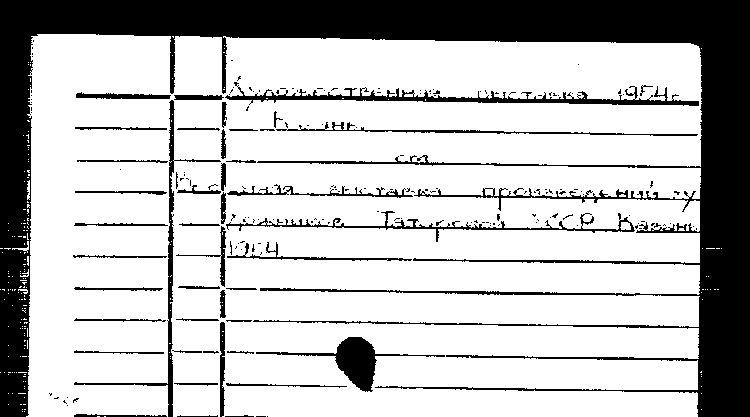 Художественная выставка 1954г.
Казань.
см.
выставка произведений ху
дожников Татарской АССР. Казань
1954